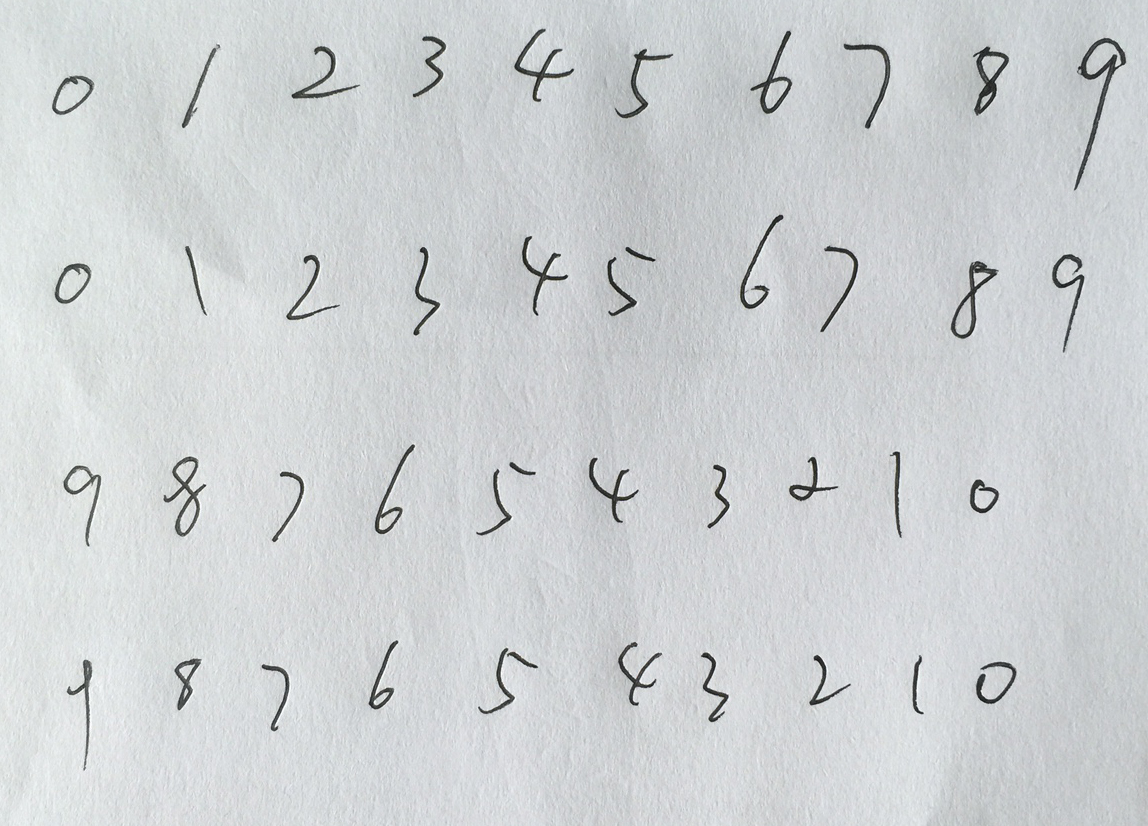 0 1 2 3 4 5 6 7 8 9
0 1 2 3 4 5 6 7 8 9
9 8 7 6 5 4 3 2 1 0
9 8 7 6 5 4 3 2 1 0